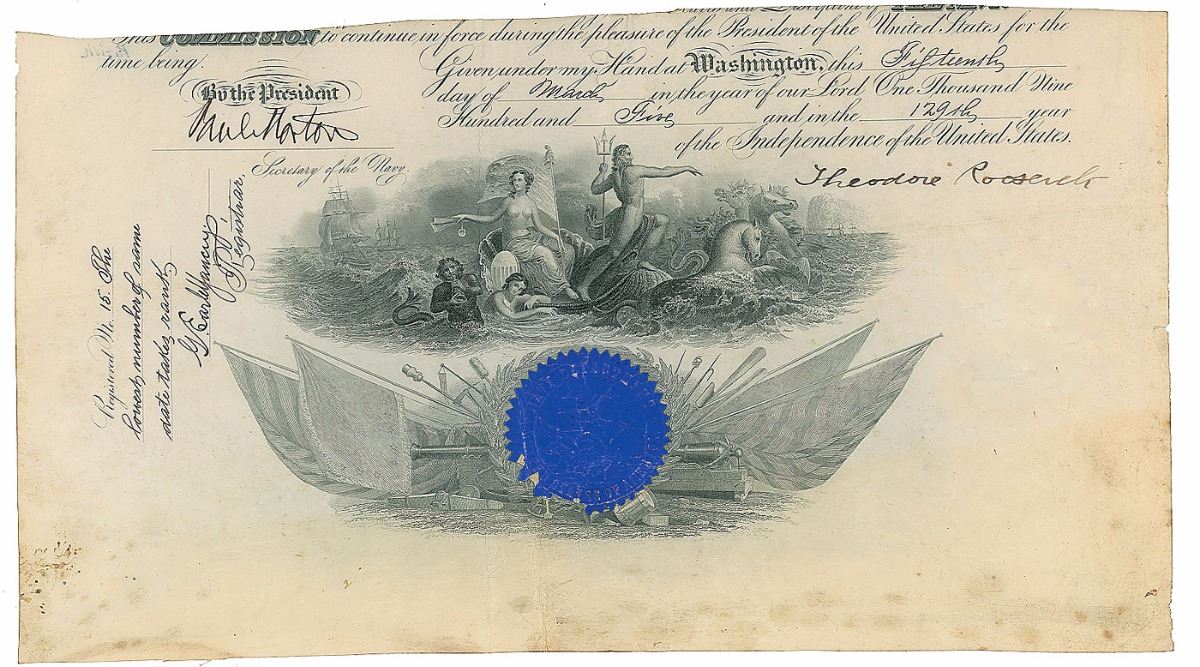 This COMMISSION to continue in force during the pleasure of the President of the United States for the
time being.
Given under my Hand at Washington, this Fifteenth
day of March in the year of our Lord One Thousand Nine
Hundred and Five and in the 129th year
of the Independence of the United States.
By the President
Paul Morton
Secretary of the Navy.
Theodore Roosevelt
Registered No. 15. The
lowest number of same
date takes rank
Registrar.